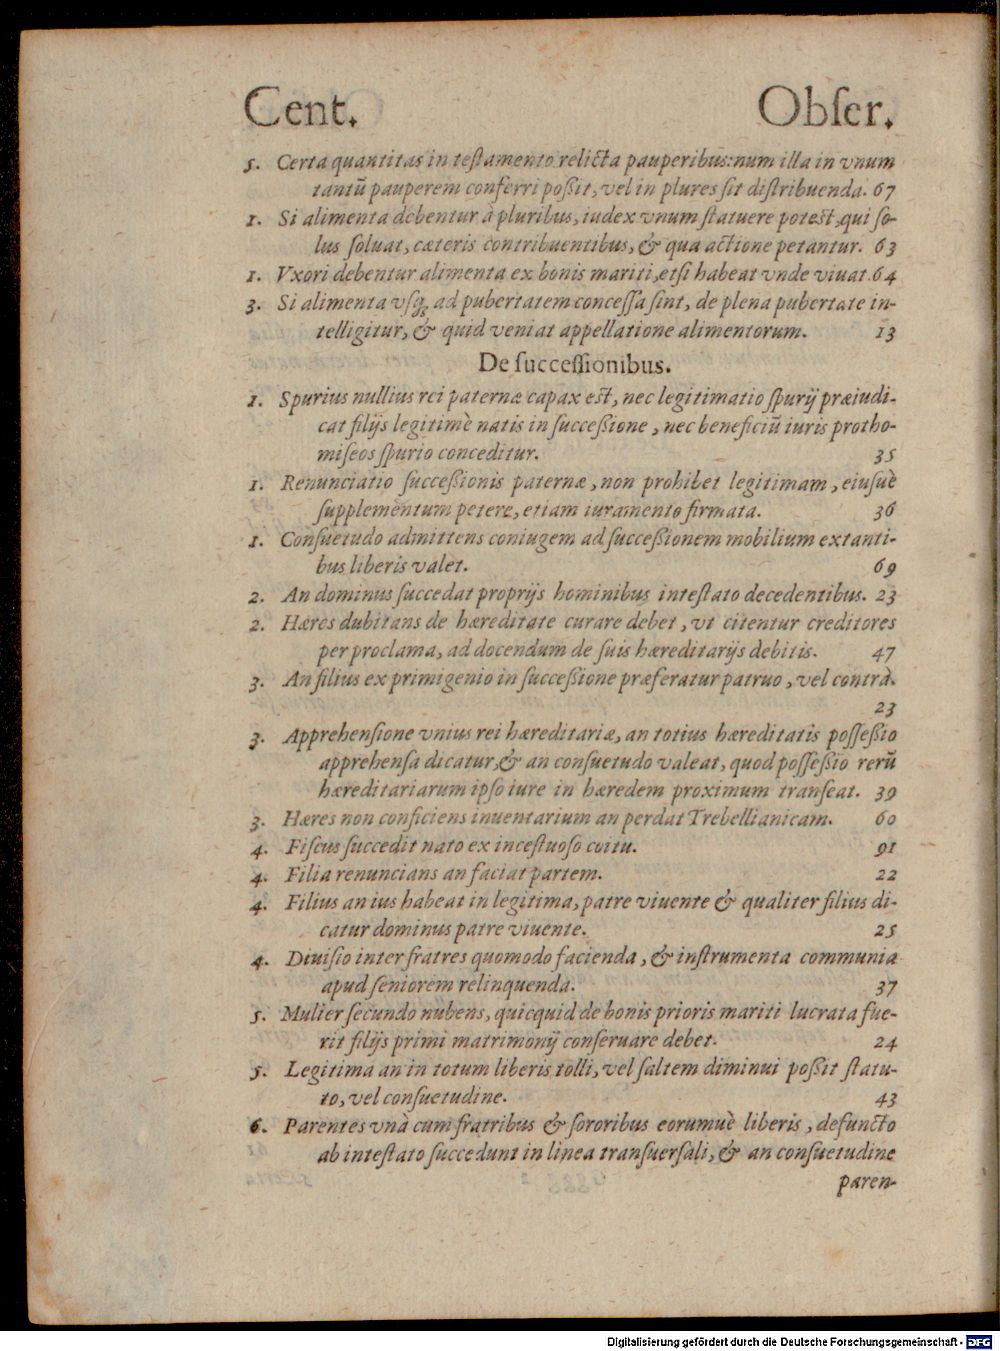 Cent. Obſer.
5. Certa quantitas in teſtamento relicta pauperibus: num illa in vnum
tantū pauperem conferri poßit, vel in plures ſit diſtribuenda. 67
1. Si alimenta debentur à pluribus, iudex vnum ſtatuere poteſt, qui ſo-
lus ſoluat, cæteris contribuentibus, & qua actione petantur. 63
1. Vxori debentur alimenta ex bonis mariti, etſi habeat vnde viuat. 64
3. Si alimenta vſq; ad pubertatem conceſſa ſint, de plena pubertate in-
telligitur, & quid veniat appellatione alimentorum. 13
De ſucceſſionibus.
1. Spurius nullius rei paternæ capax eſt, nec legitimatio ſpurij præiudi-
cat filijs legitimè natis in ſucceßione, nec beneficiū iuris protho-
miſeos ſpurio conceditur. 35
1. Renunciatio ſucceßionis paternæ, non prohibet legitimam, eiuſuè
ſupplementum petere, etiam iuramento firmata. 36
1. Conſuetudo admittens coniugem ad ſucceßionem mobilium extanti-
bus liberis valet. 69
2. An dominus ſuccedat proprijs hominibus inteſtato decedentibus. 23
2. Hæres dubitans de hæreditate curare debet, vt citentur creditores
per proclama, ad docendum de ſuis hæreditarijs debitis. 47
3. An filius ex primigenio in ſucceßione præferatur patruo, vel contrà.
23
3. Apprehenſione vnius rei hæreditariæ, an totius hæreditatis poſſeßio
apprehenſa dicatur, & an conſuetudo valeat, quod poſſeßio rerū
hæreditariarum ipſo iure in hæredem proximum tranſeat. 39
3. Hæres non conficiens inuentarium an perdat Trebellianicam. 60
4. Fiſcus ſuccedit nato ex inceſtuoſo coitu. 91
4. Filia renuncians an faciat partem. 22
4. Filius an ius habeat in legitima, patre viuente & qualiter filius di-
catur dominus patre viuente. 25
4. Diuiſio inter fratres quomodo facienda, & inſtrumenta communia
apud ſeniorem relinquenda. 37
5. Mulier ſecundo nubens, quicquid de bonis prioris mariti lucrata fue-
rit filijs primi matrimonij conſeruare debet. 24
5. Legitima an in totum liberis tolli, vel ſaltem diminui poßit ſtatu-
to, vel conſuetudine. 43
6. Parentes vnà cum fratribus & ſororibus eorumuè liberis, defuncto
ab inteſtato ſuccedunt in linea tranſuerſali, & an conſuetudine
paren-
Digitalisierung gefördert durch die Deutsche Forschungsgemeinschaft - DFG